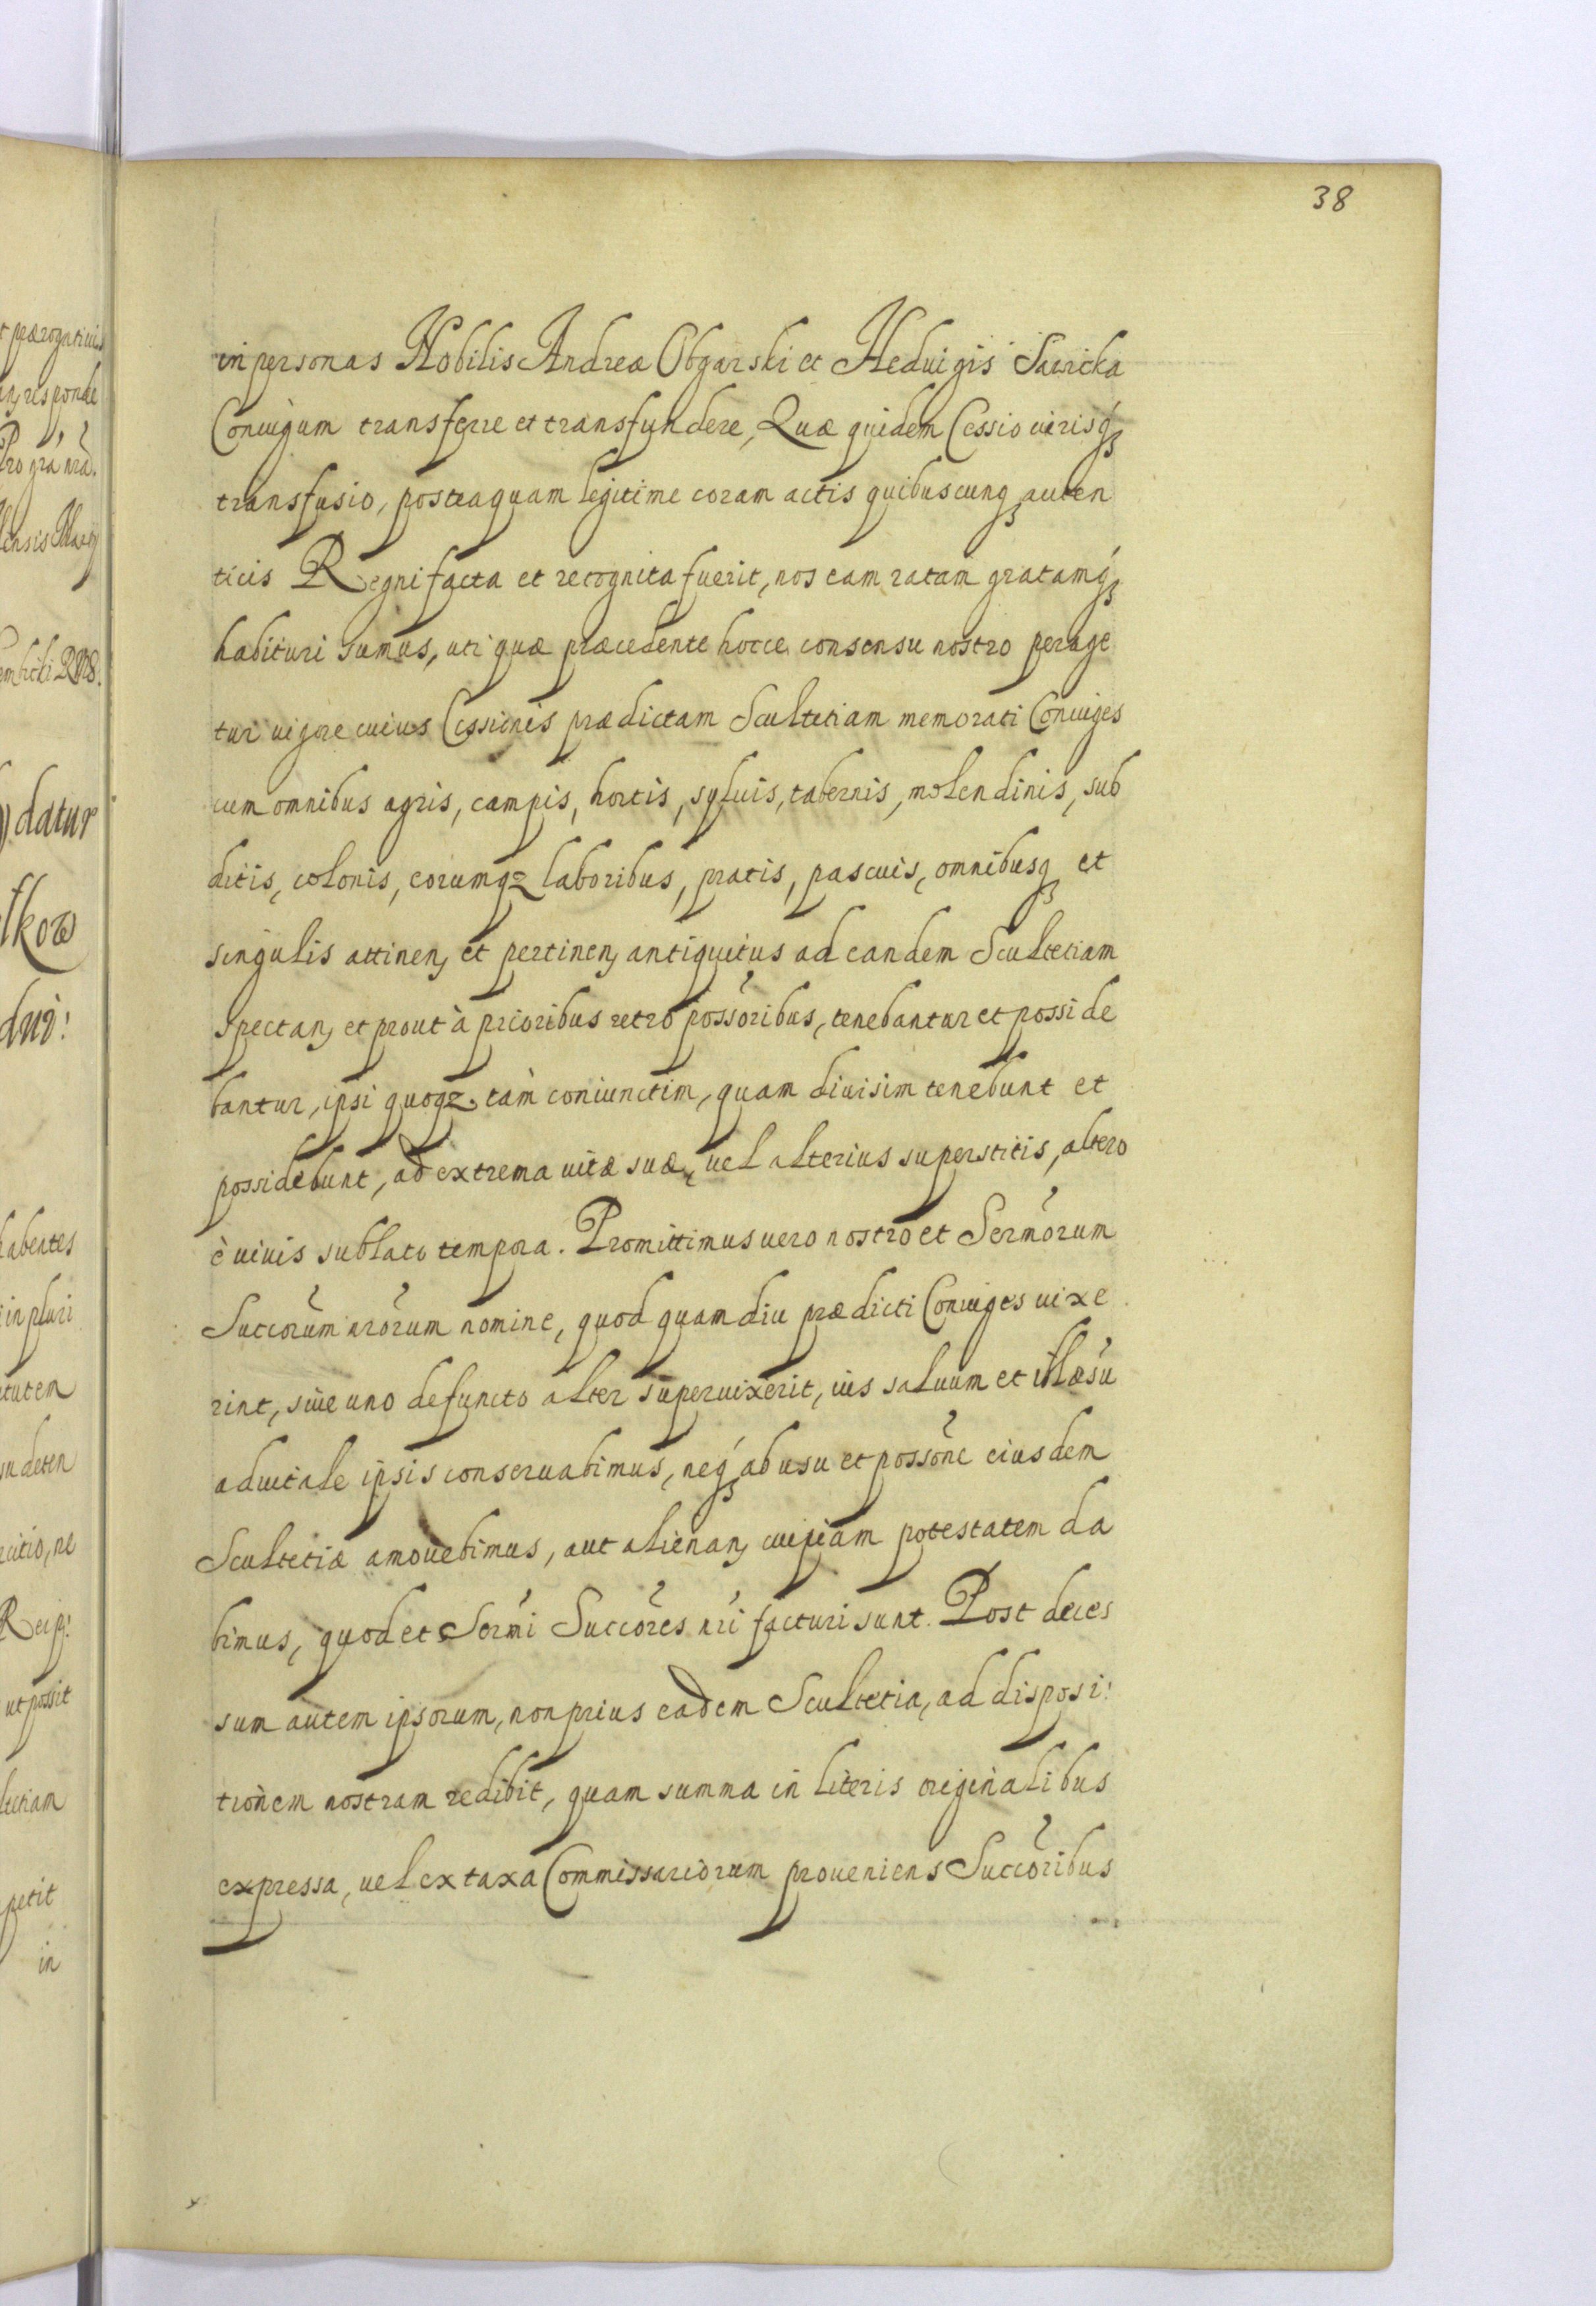 38
in personas Nobilis Andreæ Obgarski et Hedvigis Sawicka
Coniugum transferre et transfundere, Quæ quidem Cessio iurisq3
transfusio, posteaquam legitime coram actis quibuscunq3 auten
ticis Regni facta et recognita fuerit, nos eam ratam gratamq3
habituri sumus, uti quæ præcedente hocce consensu nostro perage
tur uigore cuius Cessionis prædictam Scultetiam memorati Coniuges
cum omnibus agris, campis, hortis, syluis, tabernis, molendinis, sub
ditis, colonis, eorumqz laboribus, pratis, pascuis, omnibusq3 et
singulis attinen, et pertinen, antiquitus ad eandem Scultetiam
spectan, et prout à prioribus retro possõribus, tenebantur et posside
bantur, ipsi quoqz tàm coniunctim, quam diuisim tenebunt et
possidebunt, ad extrema uitæ suæ, uel alterius superstitis, altero
è uiuis sublato tempora. Promittimus uero nostro et Sermõrum
Succorũm nrõrum nomine, quod quamdiu prædicti Coniuges uixe
rint, siue uno defuncto alter superuixerit, ius saluum et illæsũ
aduitale ipsis conseruabimus, neq3 ab usu et possõne eiusdem
Scultetiæ amouebimus, aut alienan, cuipiam potestatem da
bimus, quod et Sermĩ Succõres nrĩ facturi sunt. Post deces
sum autem ipsorum, non prius eadem Scultetia, ad disposi:
tionem nostram redibit, quam summa in literis originalibus
expressa, uel ex taxa Commissariorum proueniens Succõribus
datur
petit
in